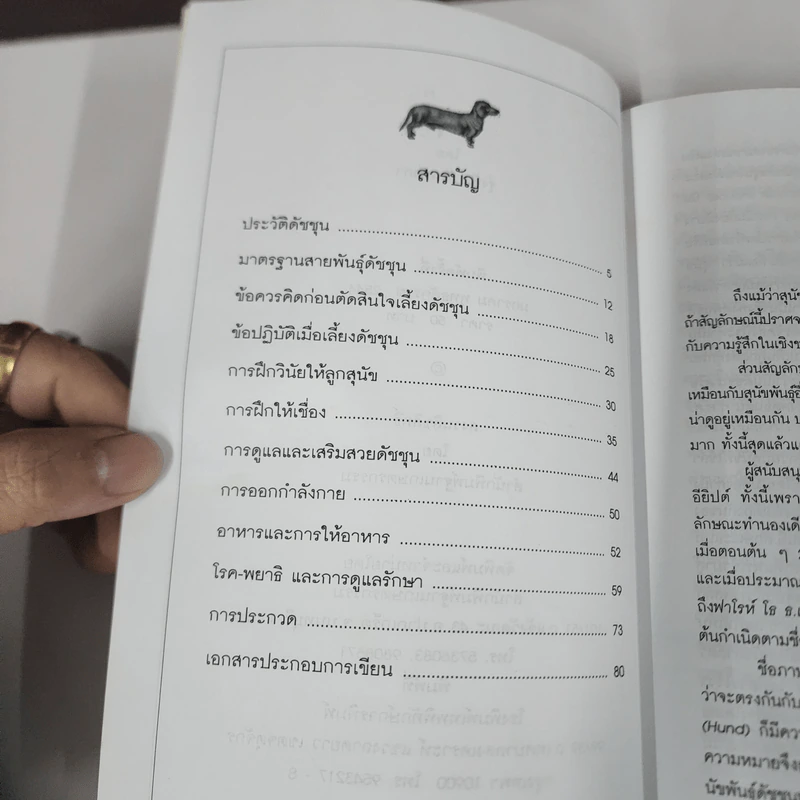 สารบัญ
ประวัติดัชชุน 5
มาตรฐานสายพันธุ์ดัชชุน 12
ข้อควรคิดก่อนตัดสินใจเลี้ยงดัชชุน 18
ข้อปฏิบัติเมื่อเลี้ยงดัชชุน 25
การฝึกวินัยให้ลูกสุนัข 30
การฝึกให้เชื่อง 35
การดูแลและเสริมสวยดัชชุน 44
การออกกำลังกาย 50
อาหารและการให้อาหาร 52
โรค-พยาธิ และการดูแลรักษา 59
การประกวด 73
เอกสารประกอบการเขียน 80
ถึงแม้ว่าสุนัข
ถ้าสัญลักษณ์นี้ปราศจ
กับความรู้สึกในเชิงช
ส่วนสัญลัก
เหมือนกับสุนัขพันธุ์อื
น่าดูอยู่เหมือนกัน
มาก ทั้งนี้สุดแล้วแ
ผู้สนับสนุ
อียิปต์ ทั้งนี้เพรา
ลักษณะทำนองเดี
เมื่อตอนต้น ๆ
และเมื่อประมาณ
ถึงฟาโรห์ โธ ธ.
ต้นกำเนิดตามชื่
ชื่อภา
ว่าจะตรงกันกับ
(Hund) ก็มีคว
ความหมายจึง
นัขพันธุ์ดัชชุน